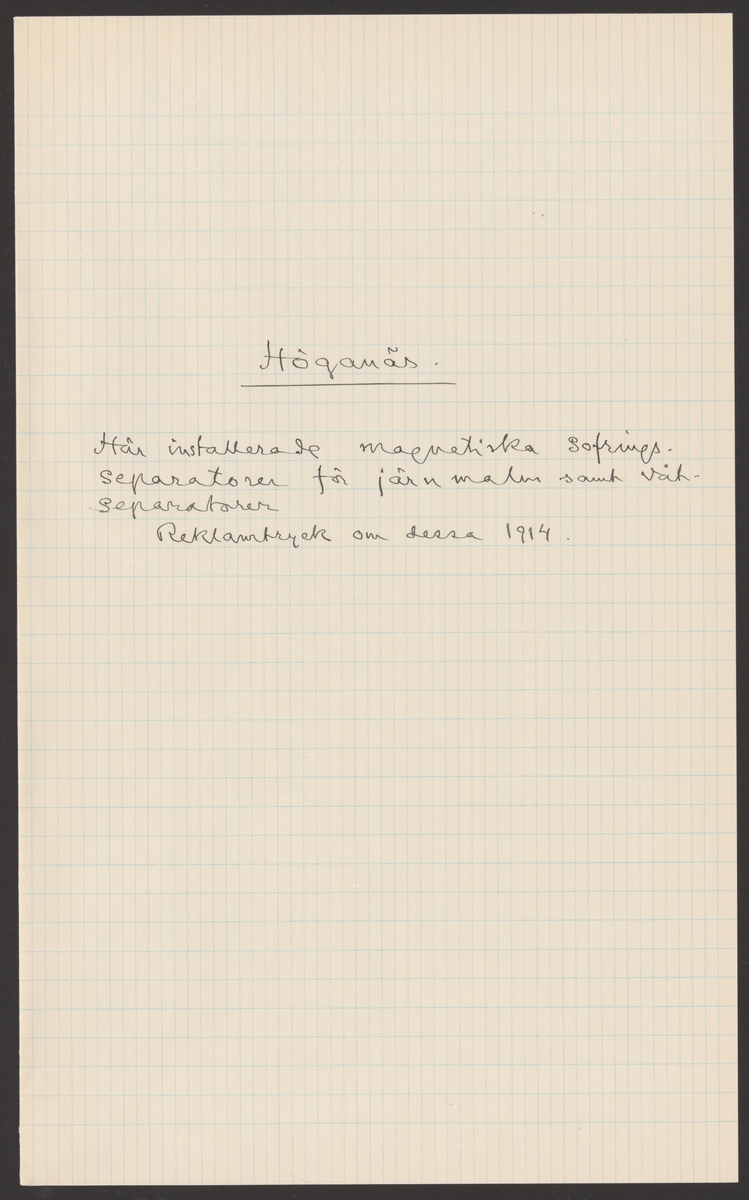 Höganäs.
Här installerade magnetiska Sofrings-
separatorer för järnmalm samt våt-
separatorer
Reklamtryck om dessa 1914.